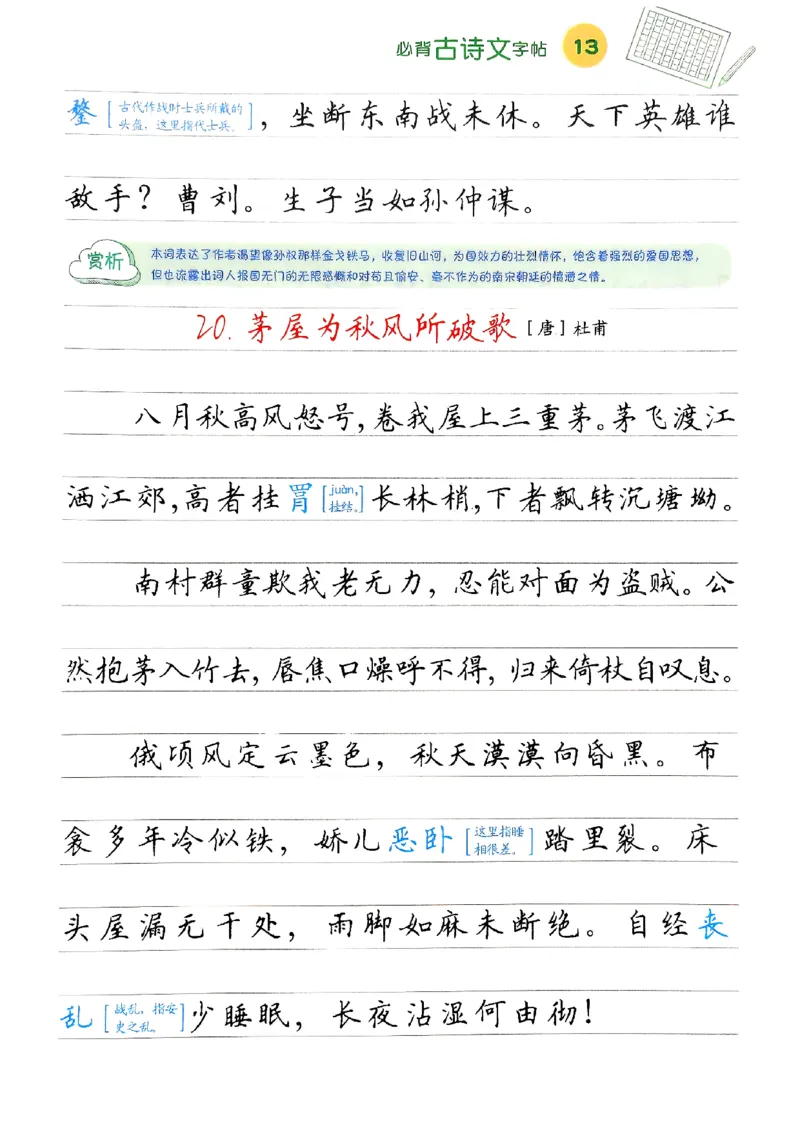 必背古诗文字帖 13
鍪[古代作战时士兵所戴的头盔,这里指代士兵。],坐断东南战未休。天下英雄谁
敌手?曹刘。生子当如孙仲谋。
赏析 本词表达了作者渴望像孙权那样金戈铁马,收复旧山河,为国效力的壮烈情怀,饱含着强烈的爱国思想,
但也流露出词人报国无门的无限感慨和对苟且偷安、毫不作为的南宋朝廷的愤懑之情。
20. 茅屋为秋风所破歌[唐]杜甫
八月秋高风怒号,卷我屋上三重茅。茅飞渡江
洒江郊,高者挂罥[juàn,挂结。]长林梢,下者飘转沉塘坳。
南村群童欺我老无力,忍能对面为盗贼。公
然抱茅入竹去,唇焦口燥呼不得,归来倚杖自叹息。
俄顷风定云墨色,秋天漠漠向昏黑。布
衾多年冷似铁,娇儿恶卧[这里指睡相很差。]踏里裂。床
头屋漏无干处,雨脚如麻未断绝。自经丧
乱[战乱,指安史之乱。]少睡眠,长夜沾湿何由彻!